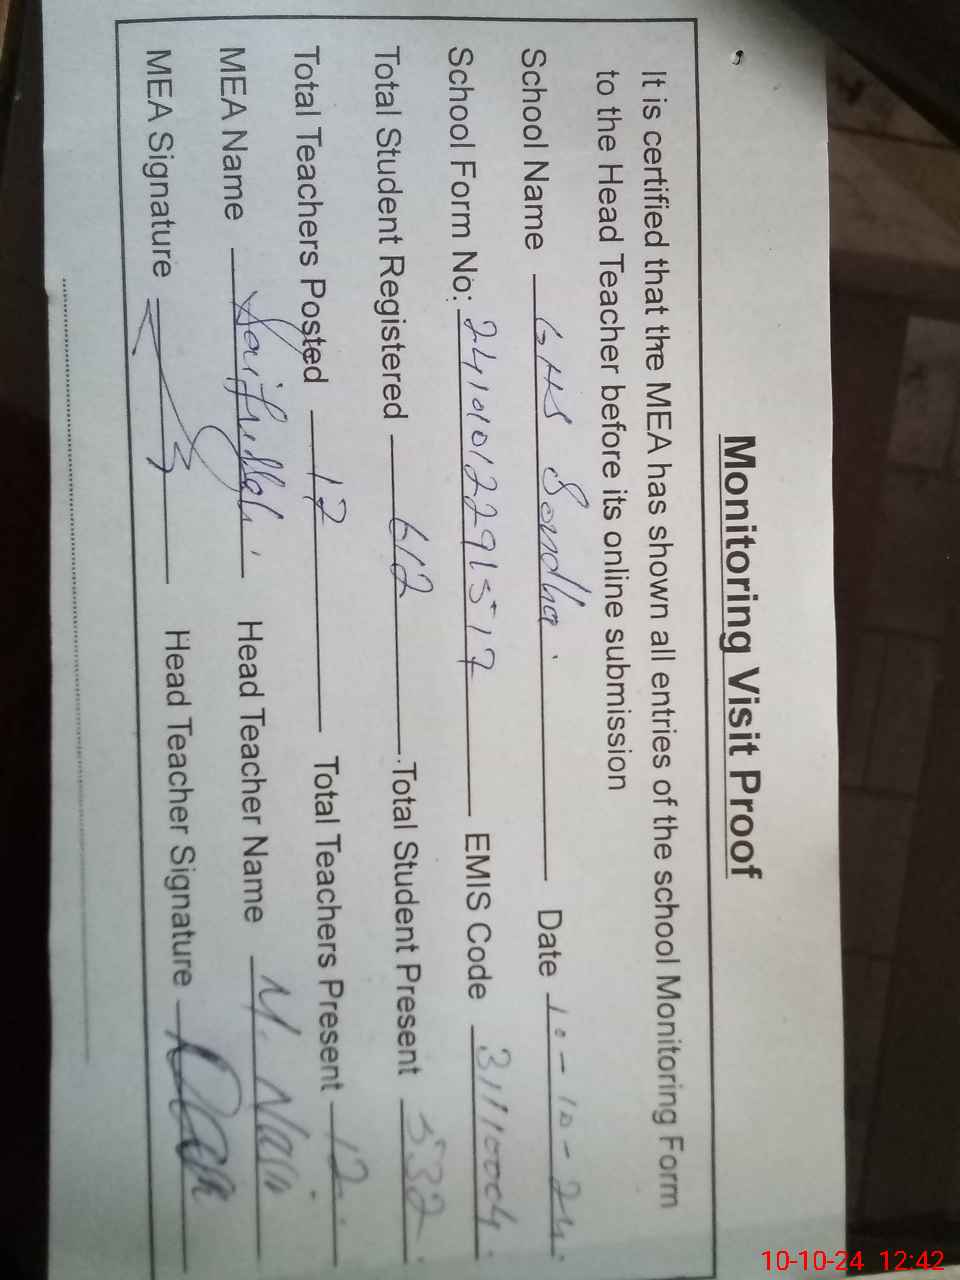 Monitoring Visit Proof
It is certified that the MEA has shown all entries of the school Monitoring Form
to the Head Teacher before its online submission
School Name GHS Sondha Date 10-10-24
School Form No: 24101012291517 EMIS Code 31110004
Total Student Registered 612 Total Student Present 532
Total Teachers Posted 12 Total Teachers Present 12
MEA Name Saifullah Head Teacher Name M. Nasir
MEA Signature Head Teacher Signature
10-10-24 12:42